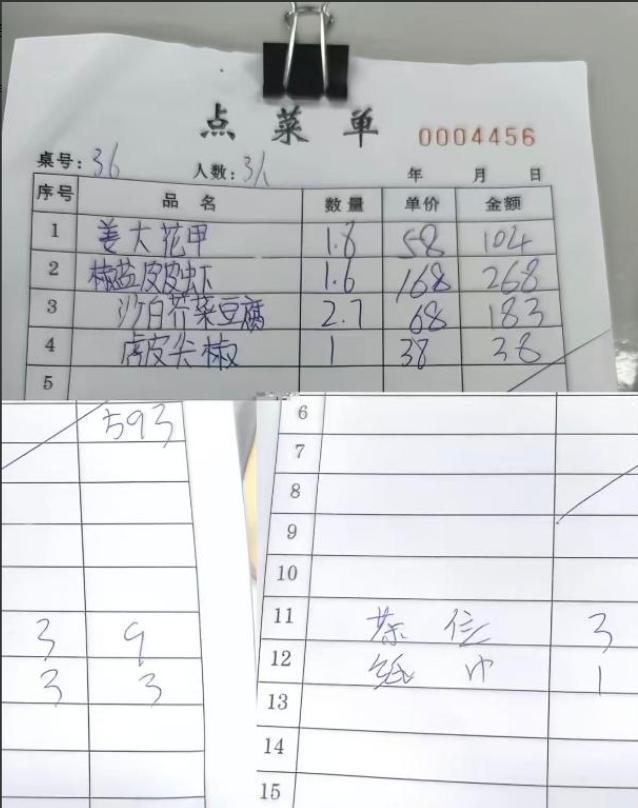 点菜单 0004456
桌号: 36 人数: 3人 年 月 日
序号 品名 数量 单价 金额
1 姜大花甲 1.8 58 104
2 椒盐皮皮虾 1.6 168 268
3 沙白芥菜豆腐 2.7 68 183
4 虎皮尖椒 1 38 38
5
593
3 9
3 3
6
7
8
9
10
11 茶位 3
12 纸巾 1
13
14
15